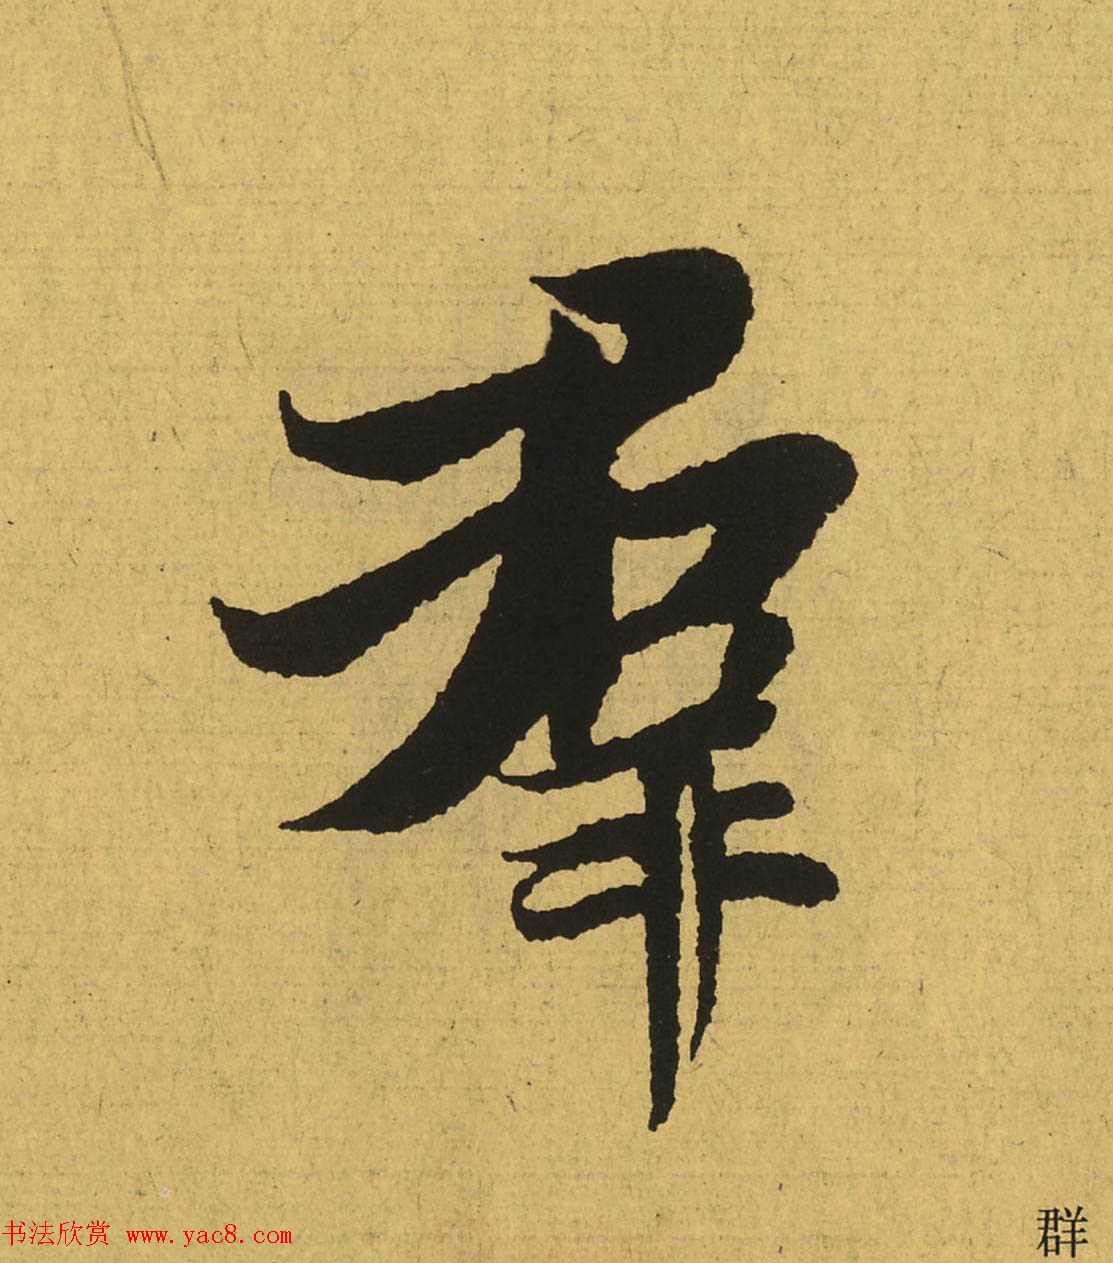 羣
群
书法欣赏 www.yac8.com